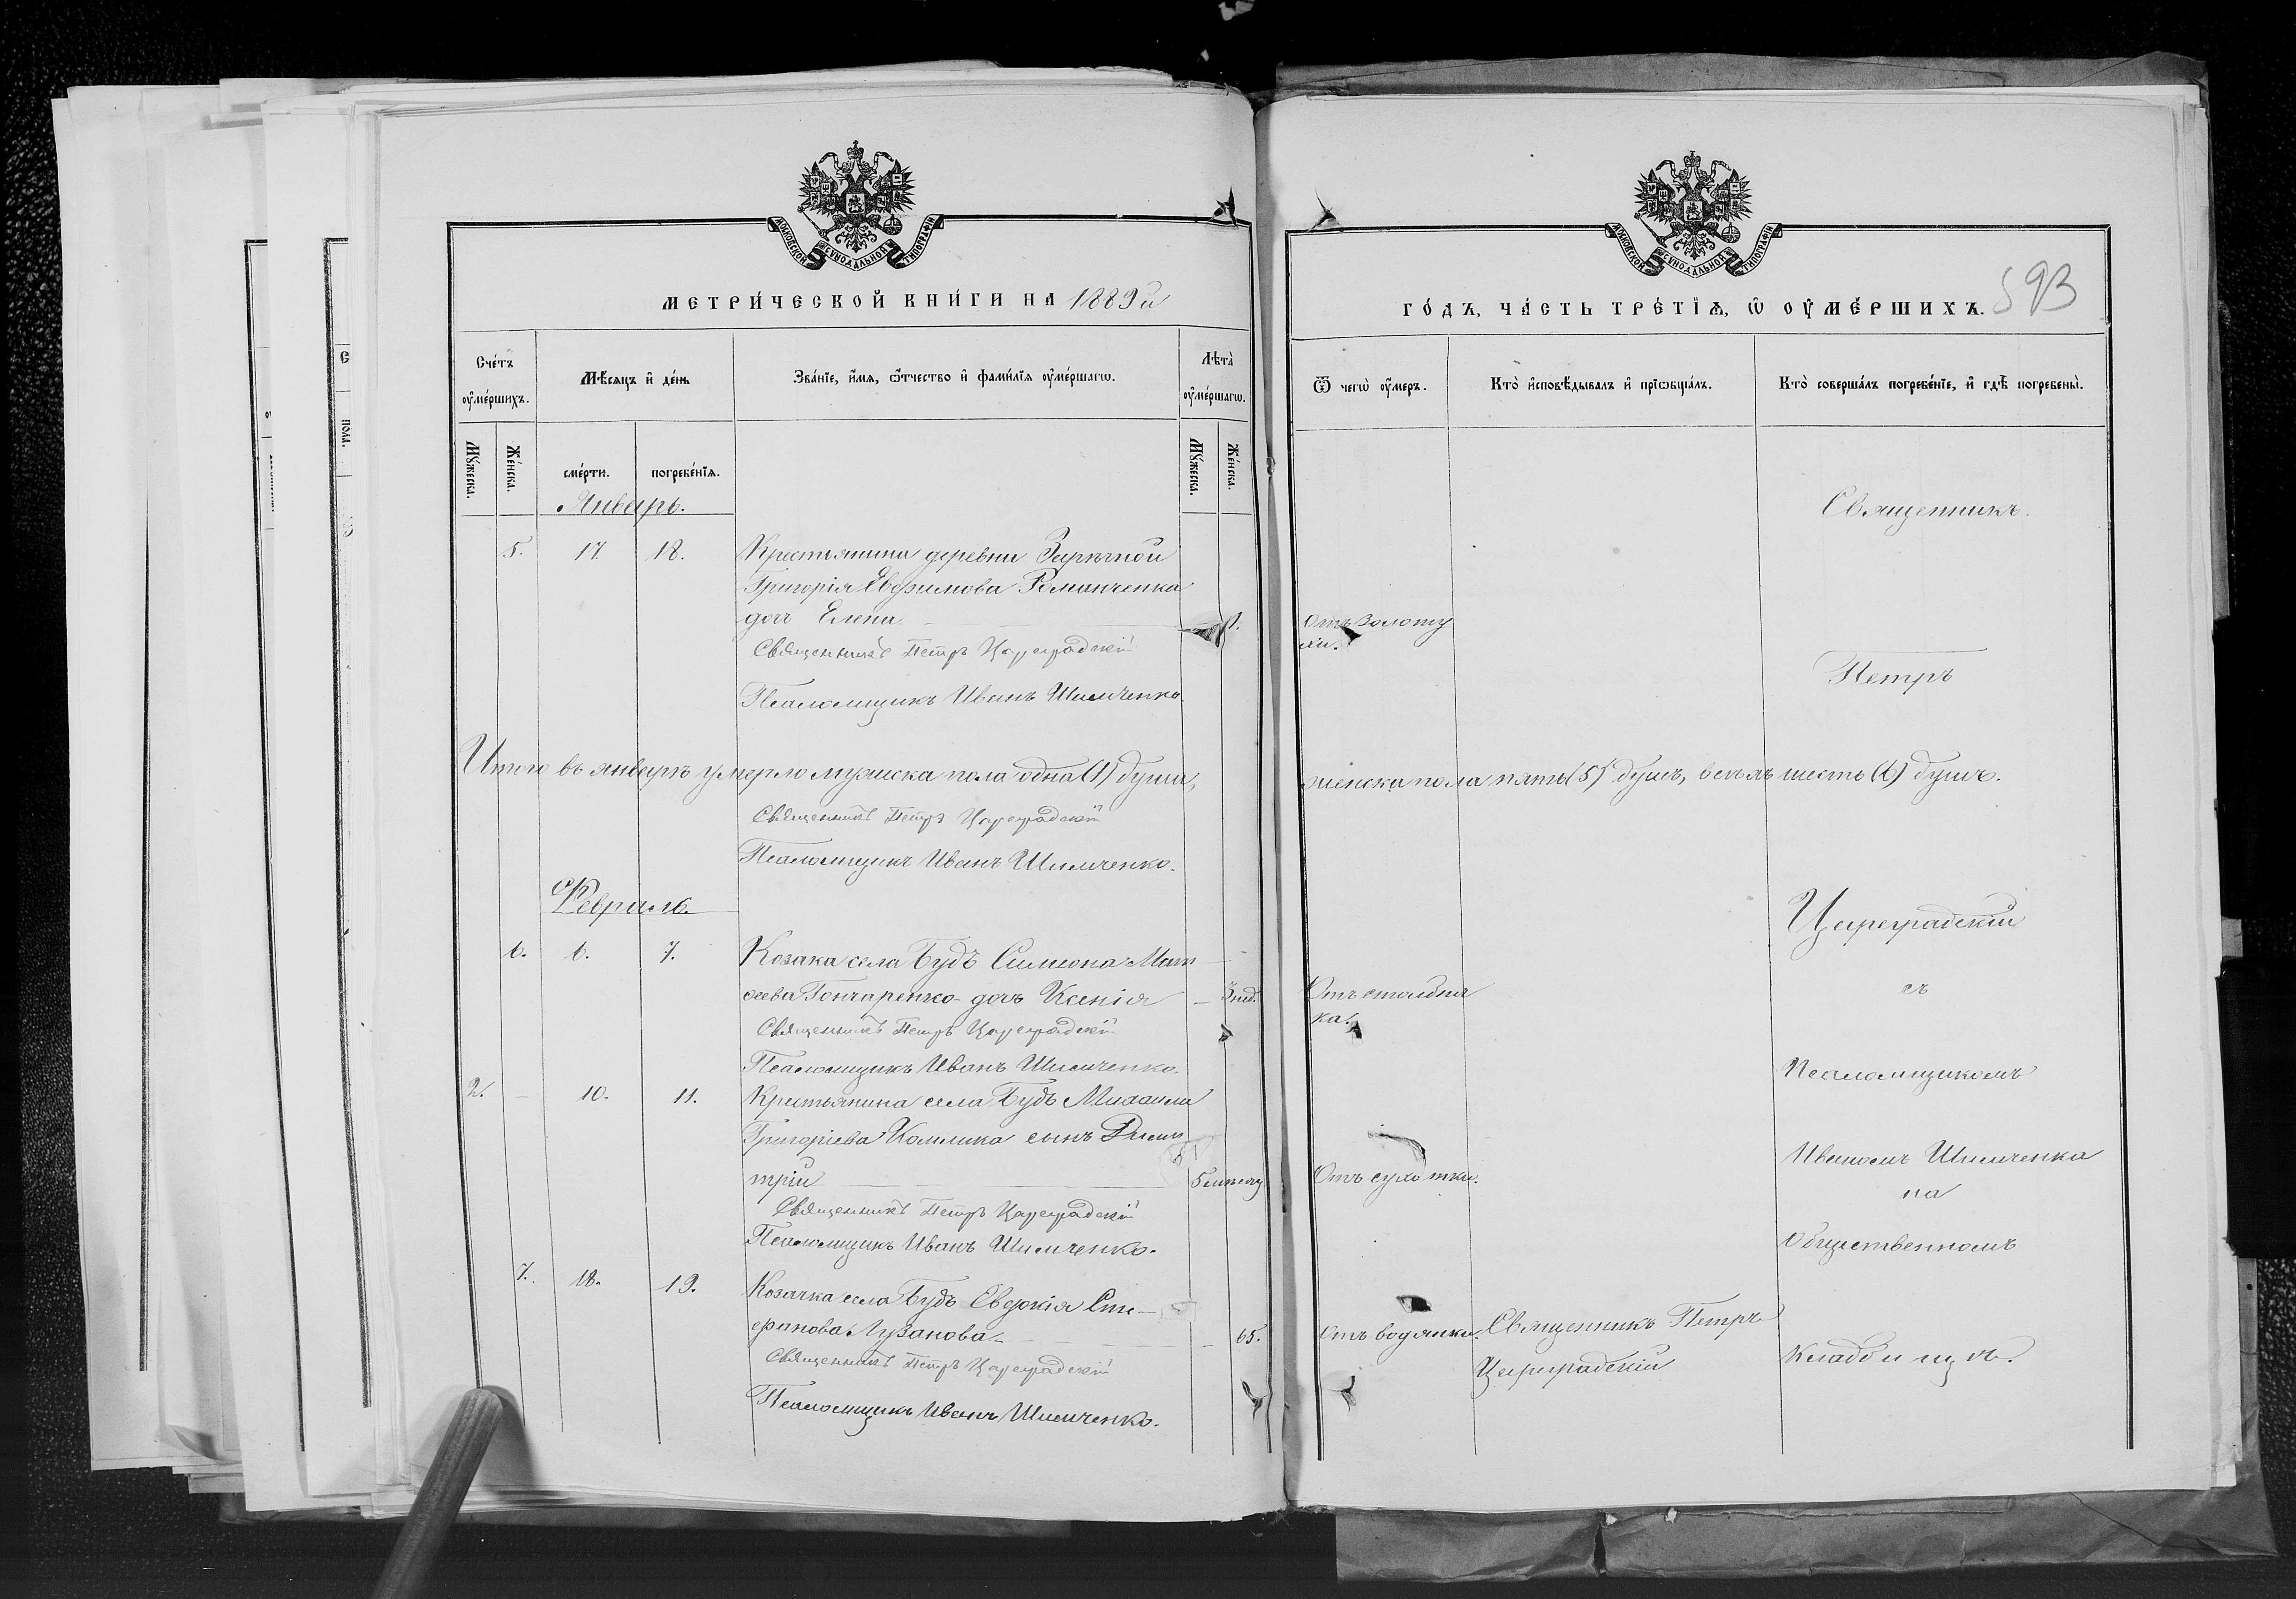 МОСКОВСКОЙ СѴНОДАЛЬНОЙ ТИПОГРАФІИ
МЕТРИ́ЧЕСКОЙ КНИ́ГИ НА 1889й
Сче́тъ оумéршихъ.
Мѣ́сяцъ и де́нь
Зва́нїе, и́мя, ѻ҆́тчество и҆ фами́лїя оу҆ме́ршагѡ.
Лѣта̀ оу҆ме́ршагѡ.
Му́жеска.
Же́нска.
сме́рти.
погребе́нїя.
Му́жеска.
Же́нска.
Январь.
5. 17. 18. Крестьянина деревни Заречной
Григорія Евфимова Романченка
дочь Елена 1.
Священникъ Петръ Цареградскій
Псаломщикъ Иванъ Шимченко.
Итого въ январѣ умерло мужска пола одна (1) душа,
Священникъ Петръ Цареградскій
Псаломщикъ Иванъ Шимченко.
Февраль
6. 6. 7. Козака села Будъ Симеона Мат
ѳеева Гончаренко дочь Ксенія 3 нед.
Священникъ Петръ Цареградскій
Псаломщикъ Иванъ Шимченко.
2. 10. 11. Крестьянина села Будъ Михаила
Григоріева Комлика сынъ Дими
трій
Священникъ Петръ Цареградскій
Псаломщикъ Иванъ Шимченко.
7. 18. 19. Козачка села Будъ Евдокія Сте-
фанова Лузанова 65.
Священникъ Петръ Цареградскій
Псаломщикъ Иванъ Шимченко.
МОСКОВСКОЙ СѴНОДАЛЬНОЙ ТИПОГРАФІИ
ГО́ДЪ, ЧА́СТЬ ТРЕ́ТЇѦ, Ѡ ОУ҆МЕ́РШИХЪ.
593
Ѿ чегѡ̀ оу҆́меръ.
Кто̀ и҆сповѣ́дывалъ и҆ прїѡбща́лъ.
Кто̀ соверша́лъ погребе́нїе, и҆ гдѣ̀ погребены̀.
Священникъ.
Отъ золоту
хи.
Петръ
женска пола пять (5) душъ, всѣхъ шесть (6) душъ.
Цареградскій
Отъ столбня
ка.
съ
Псаломщикомъ
Иваномъ Шимченко
Отъ сухотки.
на
Общественномъ
Отъ водянки. Священникъ Петръ
Цареградскій
Кладбищѣ.